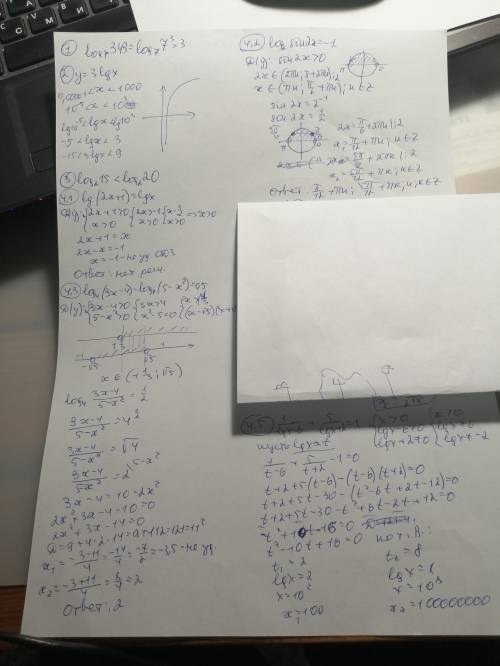 ① log₇343=log₇7³=3
2) y=3lgx
0,00001<x<1000
10⁻⁵<x<10³
lg10⁻⁵<lgx<lg10³
-5<lgx<3
-15<3lgx<9
③ 15<log 20
4.1 lg(2x+1)=lgx
2x+1>0 2x>-1 x>0
x>0 x>0
2x+1=x
2x-x=-1
x=-1 - не уд. ОДЗ
Ответ: нет реш.
4.3 log₄(3x-4)-log₄(5-x²)=0,5
3x-4>0 3x>4
5-x²>0 x²-5<0
-√5 √5
x∈(1⅓;√5)
log₄ (3x-4)/(5-x²)=1/2
(3x-4)/(5-x²)=4
(3x-4)/(5-x²)=√4
(3x-4)/(5-x²)=2
3x-4=10-2x²
2x²+3x-4-10=0
2x²+3x-14=0
D=9+4·2·14=9+112=121=11²
x₁=(-3-11)/4=-14/4=-7/2=-3,5 - не уд.
x₂=(-3+11)/4=8/4=2
Ответ: 2
4.2 log sin2x=-1
sin2x>0
2x∈(2πn;π+2πn):2
x∈(πn;π/2+πn); n∈Z
sin2x=2⁻¹
sin2x=1/2
2x=π/6+2πn|:2
x₁=π/12+πn; n∈Z
5π/6+2πn|:2
x₂=5π/12+πn; n∈Z
Ответ: π/12+πn; 5π/12+πn; n∈Z
4.5 1/(lgx-6)+5/(lgx+2)=1
x>0 x>0
lgx-6≠0 lgx≠6
lgx+2≠0 lgx≠-2
Пусть lgx=t
1/(t-6)+5/(t+2)-1=0
t+2+5(t-6)-(t-6)(t+2)=0
t+2+5t-30-(t²-6t+2t-12)=0
t+2+5t-30-t²+6t-2t+12=0
t²-10t+16=0
t₁=2 t₂=8
lgx=2 lgx=8
x=10² x=10⁸
x₁=100 x₂=100000000